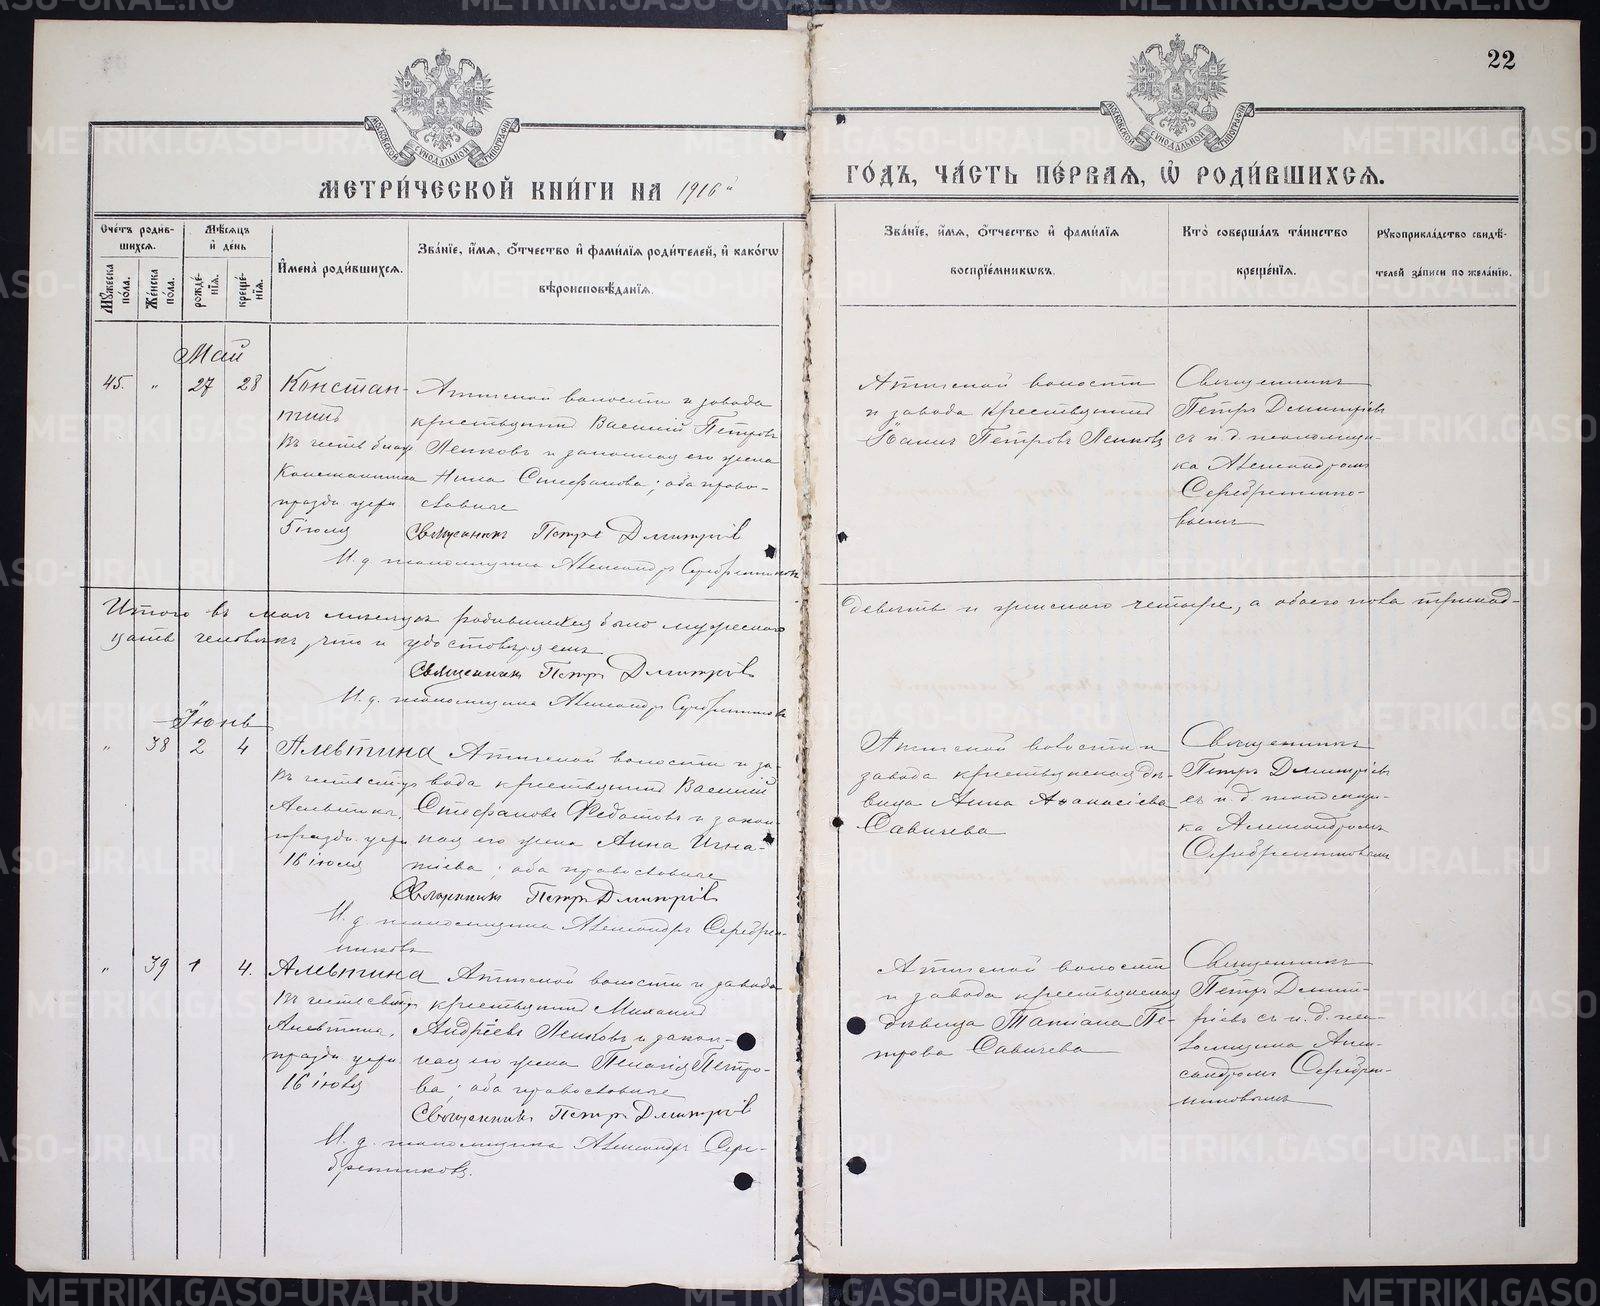 22
МОСКОВСКОЙ СѴНОДАЛЬНОЙ ТИПОГРАФІИ
МОСКОВСКОЙ СѴНОДАЛЬНОЙ ТИПОГРАФІИ
МЕТРИ́ЧЕСКОЙ КНИ́ГИ НА 1916й
ГО́ДЪ, ЧА́СТЬ ПЕ́РВАЯ, Ѡ҆ РОДИ́ВШИХСЯ.
Сче́тъ родив-
шихся.
Мѣ́сяцъ
и҆ де́нь
Му́жеска по́ла.
Же́нска по́ла.
рожде́-нїя.
креще́-нїя.
И҆мена̀ роди́вшихся.
Зва́нїе, и҆́мя, ѻ҆́тчество и҆ фами́лїя роди́телей, и҆ како́гѡ
вѣроисповѣ́данїя.
Зва́нїе, и҆́мя, ѻ҆́тчество и҆ фами́лїя
воспрїе́мникѡвъ.
Кто̀ соверша́лъ та́инство
креще́нїя.
Рукоприкла́дство свидѣ́-
телей за́писи по жела́нїю.
Май
45. " 27 28
Констан-
тинъ
Въ честь
Константина
праздн. церк.
5 іюля
Атигской волости и завода
крестьянинъ Василій Петровъ
Пенковъ и законная его жена
Нина Стефанова; оба право-
славные
Священникъ Петръ Дмитріевъ
И. д. псаломщика Александръ Серебренниковъ
Атигской волости
и завода крестьянинъ
Іоаннъ Петровъ Пенковъ
Священникъ
Петръ Димитріевъ
съ и. д. псаломщи-
ка Александромъ
Серебреннико-
вымъ
Итого въ маѣ мѣсяцѣ родившихся было мужескаго
девять и женскаго четыре, а обоего пола тринад-
цать человѣкъ, что и удостовѣряемъ
Священникъ Петръ Дмитріевъ
И. д. псаломщика Александръ Серебренниковъ
Іюнь
" 38 2 4
Алевтина
Въ честь св. муч.
Алевтины,
праздн. церк.
16 іюля
Атигской волости и за-
вода крестьянинъ Василій
Стефановъ Федотовъ и закон-
ная его жена Анна Игна-
тіева; оба православные
Священникъ Петръ Дмитріевъ
И. д. псаломщика Александръ Серебрен-
никовъ
Атигской волости и
завода крестьянская дѣ-
вица Анна Аѳанасіева
Савичева
Священникъ
Петръ Димитріевъ
съ и. д. псаломщи-
ка Александромъ
Серебренниковымъ
" 39 1 4.
Алевтина
Въ честь св. муч.
Алевтины,
праздн. церк.
16 іюля
Атигской волости и завода
крестьянинъ Михаилъ
Андреевъ Пенковъ и закон-
ная его жена Пелагія Петро-
ва; оба православные
Священникъ Петръ Дмитріевъ
И. д. псаломщика Александръ Сере-
бренниковъ.
Атигской волости
и завода крестьянская
дѣвица Татіана Пе-
трова Савичева
Священникъ
Петръ Димит-
ріевъ съ и. д. пса-
ломщика Алек-
сандромъ Серебрен-
никовымъ
METRIKI.GASO-URAL.RU